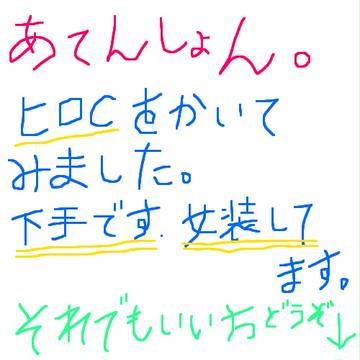 あてんしょん。
ヒロCをかいて
みました。
下手です.女装して
ます。
それでもいい方どうぞ↓